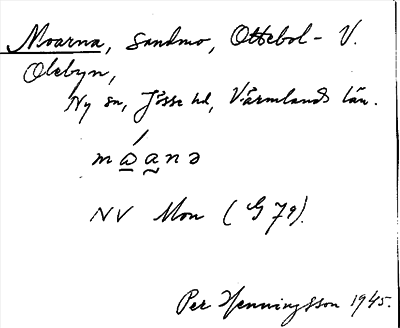 Moarna, Sandmo, Ottebol - V.
Olebyn,
Ny sn, Jösse hd, Värmlands län.
mǻ̱a̰nə
NV Mon (G 79).
Per Henningsson 1945.